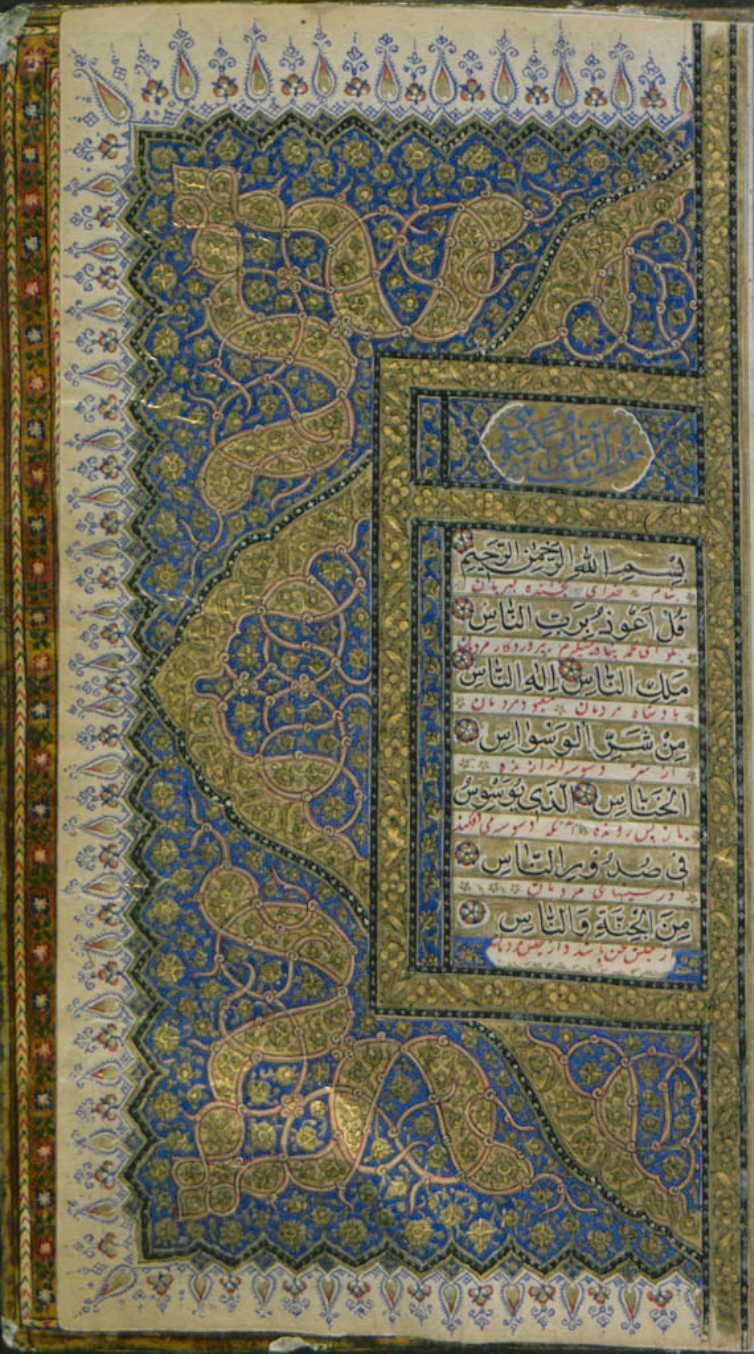 سورة الناس
بِسْمِ اللهِ الرَّحْمٰنِ الرَّحِيْمِ
بنام خدای بخشنده مهربان
قُلْ اَعُوْذُ بِرَبِّ النَّاسِ
بگو ای محمد پناه میگیرم بپروردگار مردمان
مَلِكِ النَّاسِ اِلٰهِ النَّاسِ
پادشاه مردمان معبود مردمان
مِنْ شَرِّ الْوَسْوَاسِ
از شر وسوسه اندازنده
الْخَنَّاسِ الَّذِى يُوَسْوِسُ
باز پس رونده آنکه وسوسه می افکند
فِى صُدُوْرِ النَّاسِ
در سینهای مردمان
مِنَ الْجِنَّةِ وَالنَّاسِ
از جنس جن باشند و از جنس مردمان